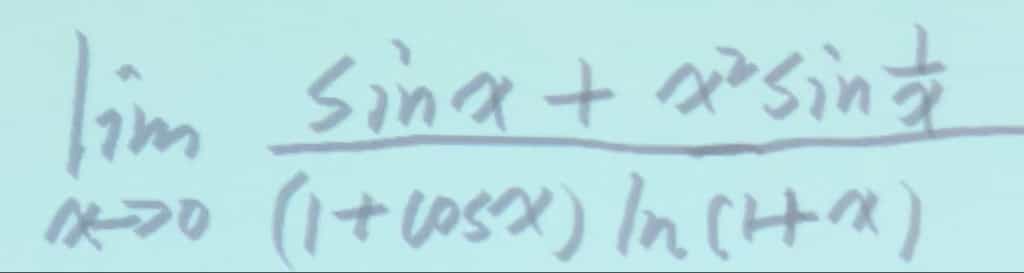 lim_{x→0} \frac{sin x + x² sin \frac{1}{x}}{(1 + cos x) ln(1 + x)}